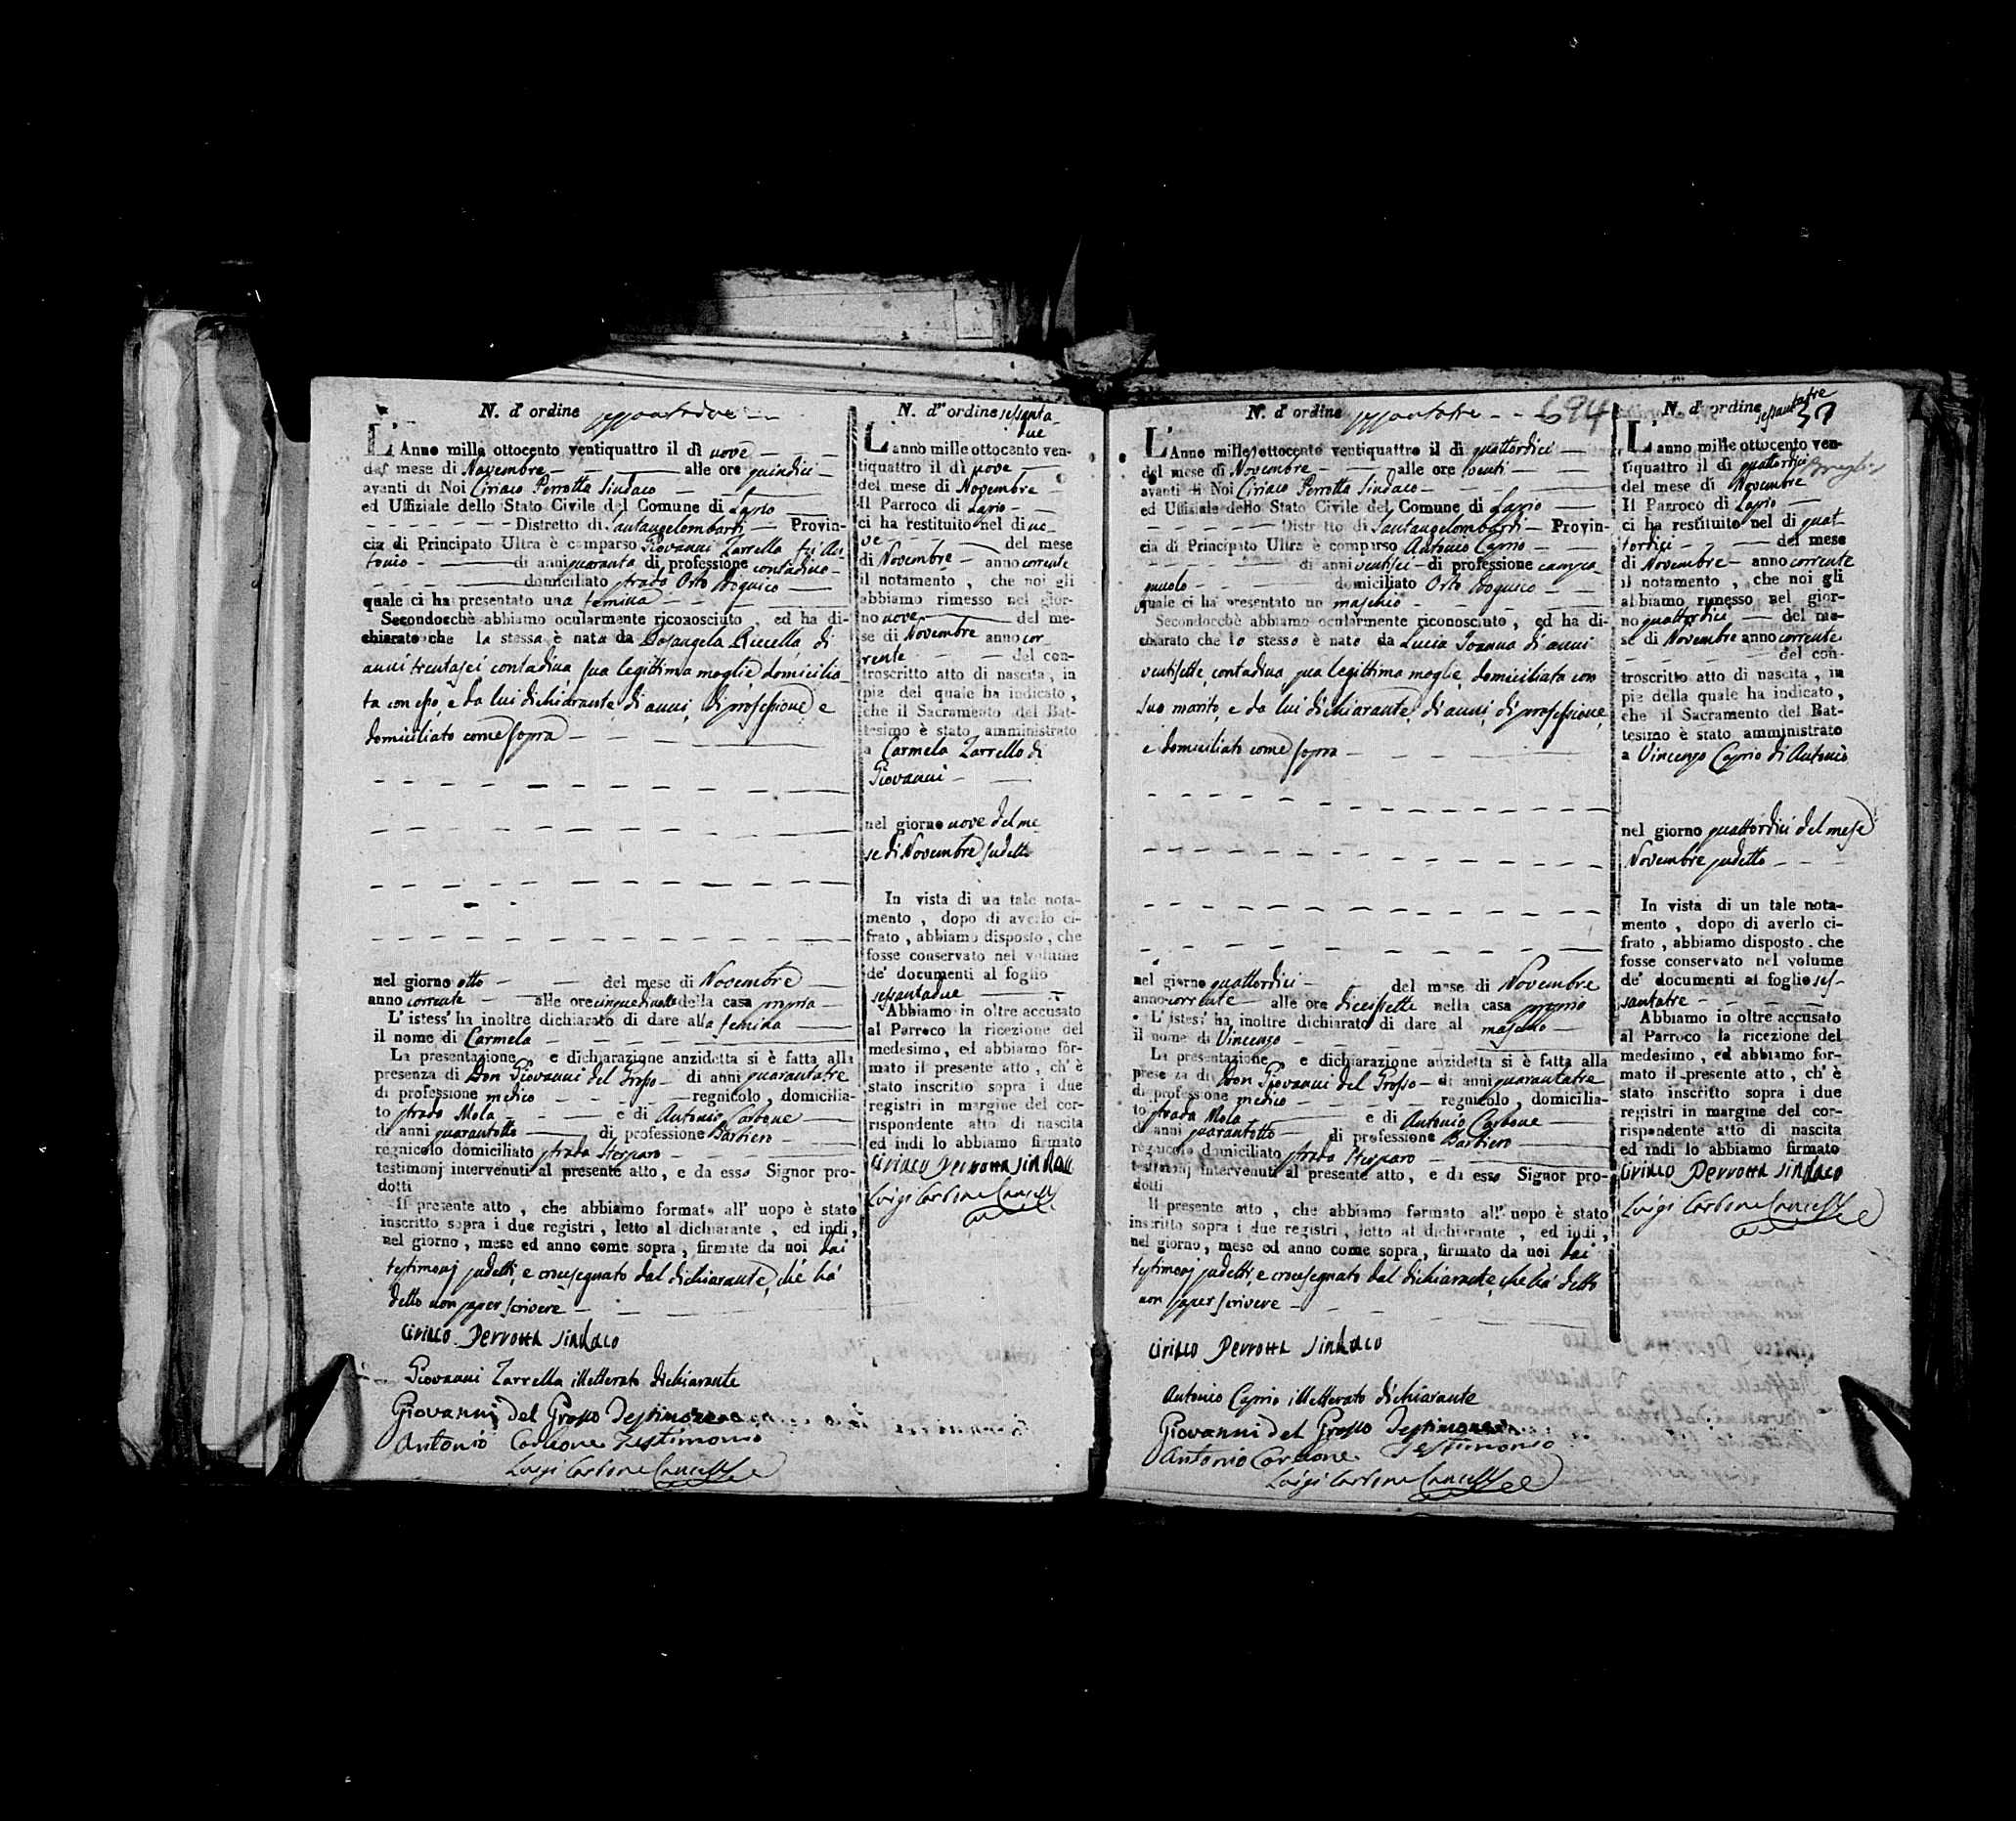 N. d' ordine sessantadue
L' Anno mille ottocento ventiquattro il dì nove
del mese di Novembre alle ore quindici
avanti di Noi Ciriaco Perrotta Sindaco
ed Uffiziale dello Stato Civile del Comune di Lapio
Distretto di Santangelombardi Provin-
cia di Principato Ultra è comparso Giovanni Zarrella fù An-
tonio di anni quaranta di professione contadino
domiciliato strada Orto
quale ci ha presentato una femina
Secondocchè abbiamo ocularmente riconosciuto, ed ha di-
chiarato che la stessa è nata da Rosangela Riccella, di
anni trentasei contadina, sua legittima moglie domicilia
ta con esso, e da lui dichiarante di anni, di professione e
domiciliato come sopra
nel giorno otto del mese di Novembre
anno corrente alle ore cinque nella casa propria
L' istess' ha inoltre dichiarato di dare alla femina
il nome di Carmela
La presentazione e dichiarazione anzidetta si è fatta alla
presenza di Don Giovanni del Grosso di anni quarantatre
di professione medico regnicolo, domicilia-
to strada Mola e di Antonio Carbone
di anni quarantotto di professione Barbiero
regnicolo domiciliato strada
testimonj intervenuti al presente atto, e da esso Signor pro-
dotti
Il presente atto, che abbiamo formato all' uopo è stato
inscritto sopra i due registri, letto al dichiarante, ed indi,
nel giorno, mese ed anno come sopra, firmate da noi dai
testimonj sudetti, e crocesegnato dal dichiarante, che hà
detto non saper scrivere
Ciriaco Perrotta Sindaco
Giovanni Zarrella illetterato dichiarante
Giovanni del Grosso Testimone
Antonio Carbone Testimonio
Luigi Carbone Cancelle
N. d' ordine sessanta-
due
L' anno mille ottocento ven-
tiquattro il dì nove
del mese di Novembre
Il Parroco di Lapio
ci ha restituito nel dì no-
ve del mese
di Novembre anno corrente
il notamento, che noi gli
abbiamo rimesso nel gior-
no nove del me-
se di Novembre anno cor
rente del con-
troscritto atto di nascita, in
pie del quale ha indicato,
che il Sacramento del Bat-
tesimo è stato amministrato
a Carmela Zarrello di
Giovanni
nel giorno nove del me
se di Novembre sudetto
In vista di un tale nota-
mento, dopo di averlo ci-
frato, abbiamo disposto, che
fosse conservato nel volume
de' documenti al foglio
sessantadue
Abbiamo in oltre accusato
al Parroco la ricezione del
medesimo, ed abbiamo for-
mato il presente atto, ch' è
stato inscritto sopra i due
registri in margine del cor-
rispondente atto di nascita
ed indi lo abbiamo firmato
Ciriaco Perrotta Sindaco
Luigi Carbone Cancelle
N. d' ordine sessantatre 694
L' Anno mille ottocento ventiquattro il dì quattordici
del mese di Novembre alle ore venti
avanti di Noi Ciriaco Perrotta Sindaco
ed Uffiziale dello Stato Civile del Comune di Lapio
Distretto di Santangelombardi Provin-
cia di Principato Ultra è comparso Antonio Caprio
di anni ventisei di professione campa
gnuolo domiciliato Orto
quale ci ha presentato un maschio
Secondocchè abbiamo ocularmente riconosciuto, ed ha di-
chiarato che lo stesso è nato da Lucia Joanna di anni
ventisette, contadina sua legittima moglie, domiciliata con
suo marito, e da lui dichiarante, di anni, di professione,
e domiciliato come sopra
nel giorno quattordici del mese di Novembre
anno corrente alle ore diecissette nella casa propria
L' istess' ha inoltre dichiarato di dare al maschio
il nome di Vincenzo
La presentazione e dichiarazione anzidetta si è fatta alla
presenza di Don Giovanni del Grosso di anni quarantatre
di professione medico regnicolo, domicilia-
to strada Mola e di Antonio Carbone
di anni quarantotto di professione Barbiero
regnicolo domiciliato strada
testimonj intervenuti al presente atto, e da esso Signor pro-
dotti
Il presente atto, che abbiamo formato all' uopo è stato
inscritto sopra i due registri, letto al dichiarante, ed indi,
nel giorno, mese ed anno come sopra, firmato da noi dai
testimonj sudetti, e crocesegnato dal dichiarante, che hà detto
non saper scrivere
Ciriaco Perrotta Sindaco
Antonio Caprio illetterato dichiarante
Giovanni del Grosso Testimone
Antonio Carbone Testimonio
Luigi Carbone Cancelle
N. d' ordine sessantatre
L' anno mille ottocento ven-
tiquattro il dì quattordici
del mese di Novembre
Il Parroco di Lapio
ci ha restituito nel dì quat-
tordici del mese
di Novembre anno corrente
il notamento, che noi gli
abbiamo rimesso nel gior-
no quattordici del me-
se di Novembre anno corrente
del con-
troscritto atto di nascita, in
pie della quale ha indicato,
che il Sacramento del Bat-
tesimo è stato amministrato
a Vincenzo Caprio di Antonio
nel giorno quattordici del mese
Novembre sudetto
In vista di un tale nota-
mento, dopo di averlo ci-
frato, abbiamo disposto, che
fosse conservato nel volume
de' documenti al foglio ses-
santatre
Abbiamo in oltre accusato
al Parroco la ricezione del
medesimo, ed abbiamo for-
mato il presente atto, ch' è
stato inscritto sopra i due
registri in margine del cor-
rispondente atto di nascita
ed indi lo abbiamo firmato
Ciriaco Perrotta Sindaco
Luigi Carbone Cancelle